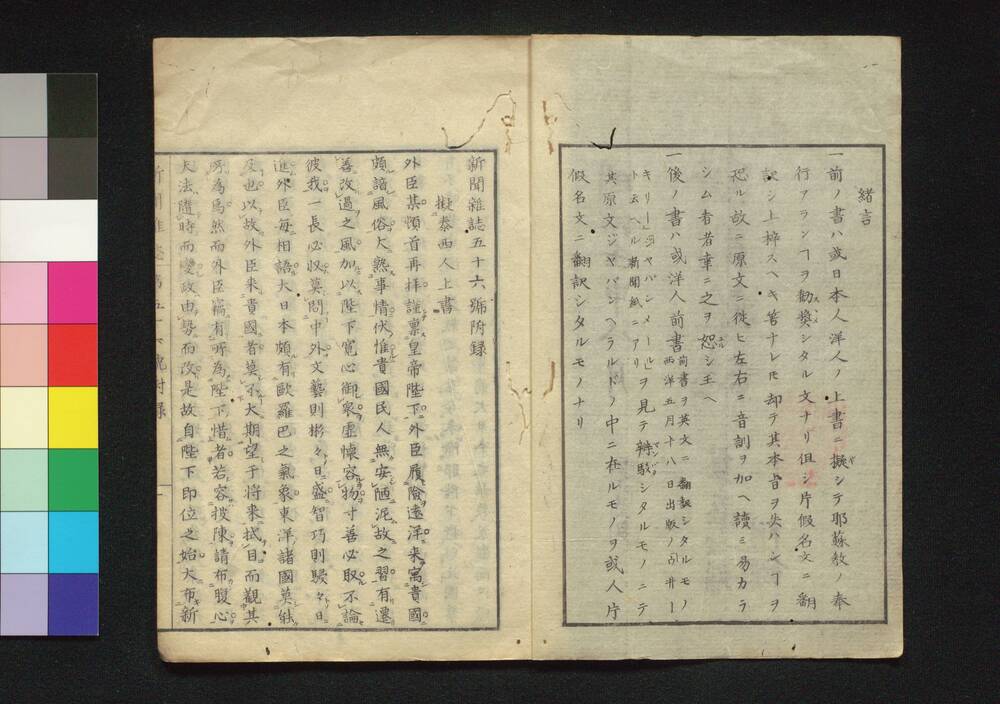 緒言
一前ノ書ハ或日本人洋人ノ上書ニ擬シテ耶蘇教ノ奉
行アランヿヲ勧奨シタル文ナリ但シ片假名文ニ翻
訳シ上梓スヘキ筈ナレ𪜈却テ其本旨ヲ失ハンヿヲ
恐ル故ニ原文ニ従ヒ左右ニ音訓ヲ加ヘ讀ミ易カラ
シム者者幸ニ之ヲ恕シ玉ヘ
一後ノ書ハ或洋人前書前書ヲ英文ニ翻訳シタルモノ西洋五月十八日出版ノ
キリートシヤパンメールト云ヘル新聞紙ニアリヲ見テ辯駁シタルモノニテ
其原文ジヤパンヘラルドノ中ニ在ルモノヲ或人片
假名文ニ翻訳シタルモノナリ
新聞雑誌五十六號附録
擬泰西人上書
外臣某頓首再拝謹稟皇帝陛下外臣履險遠洋来寓貴國
頗諳風俗久熟事情伏惟貴國民人無安陋泥故之習有遷
善改過之風加以陛下寛心御衆虚懐容物寸善必取不論
彼我一長必収莫問中外文藝則彬々日盛智巧則駸々日
進外臣毎相語大日本頗有歐羅巴之氣象東洋諸國莫能
及也以故外臣来貴國者莫不大期望于将来拭目而觀其
所為焉然而外臣竊有所為陛下惜者若容披陳請布腹心
夫法隨時而變政由勢而改是故自陛下即位之始大布新
新聞雑誌第五十六號附録 一